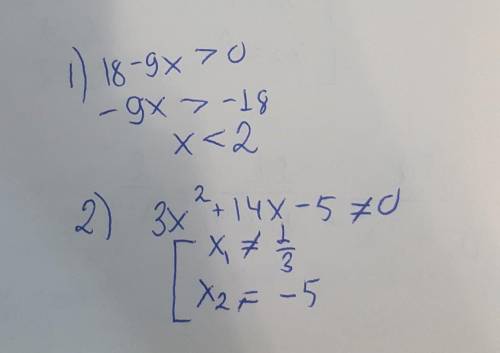 1) 18 - 9x > 0
- 9x > -18
x < 2
2) 3x² + 14x - 5 ≠ 0
[ x₁ ≠ 1/3
x₂ ≠ -5